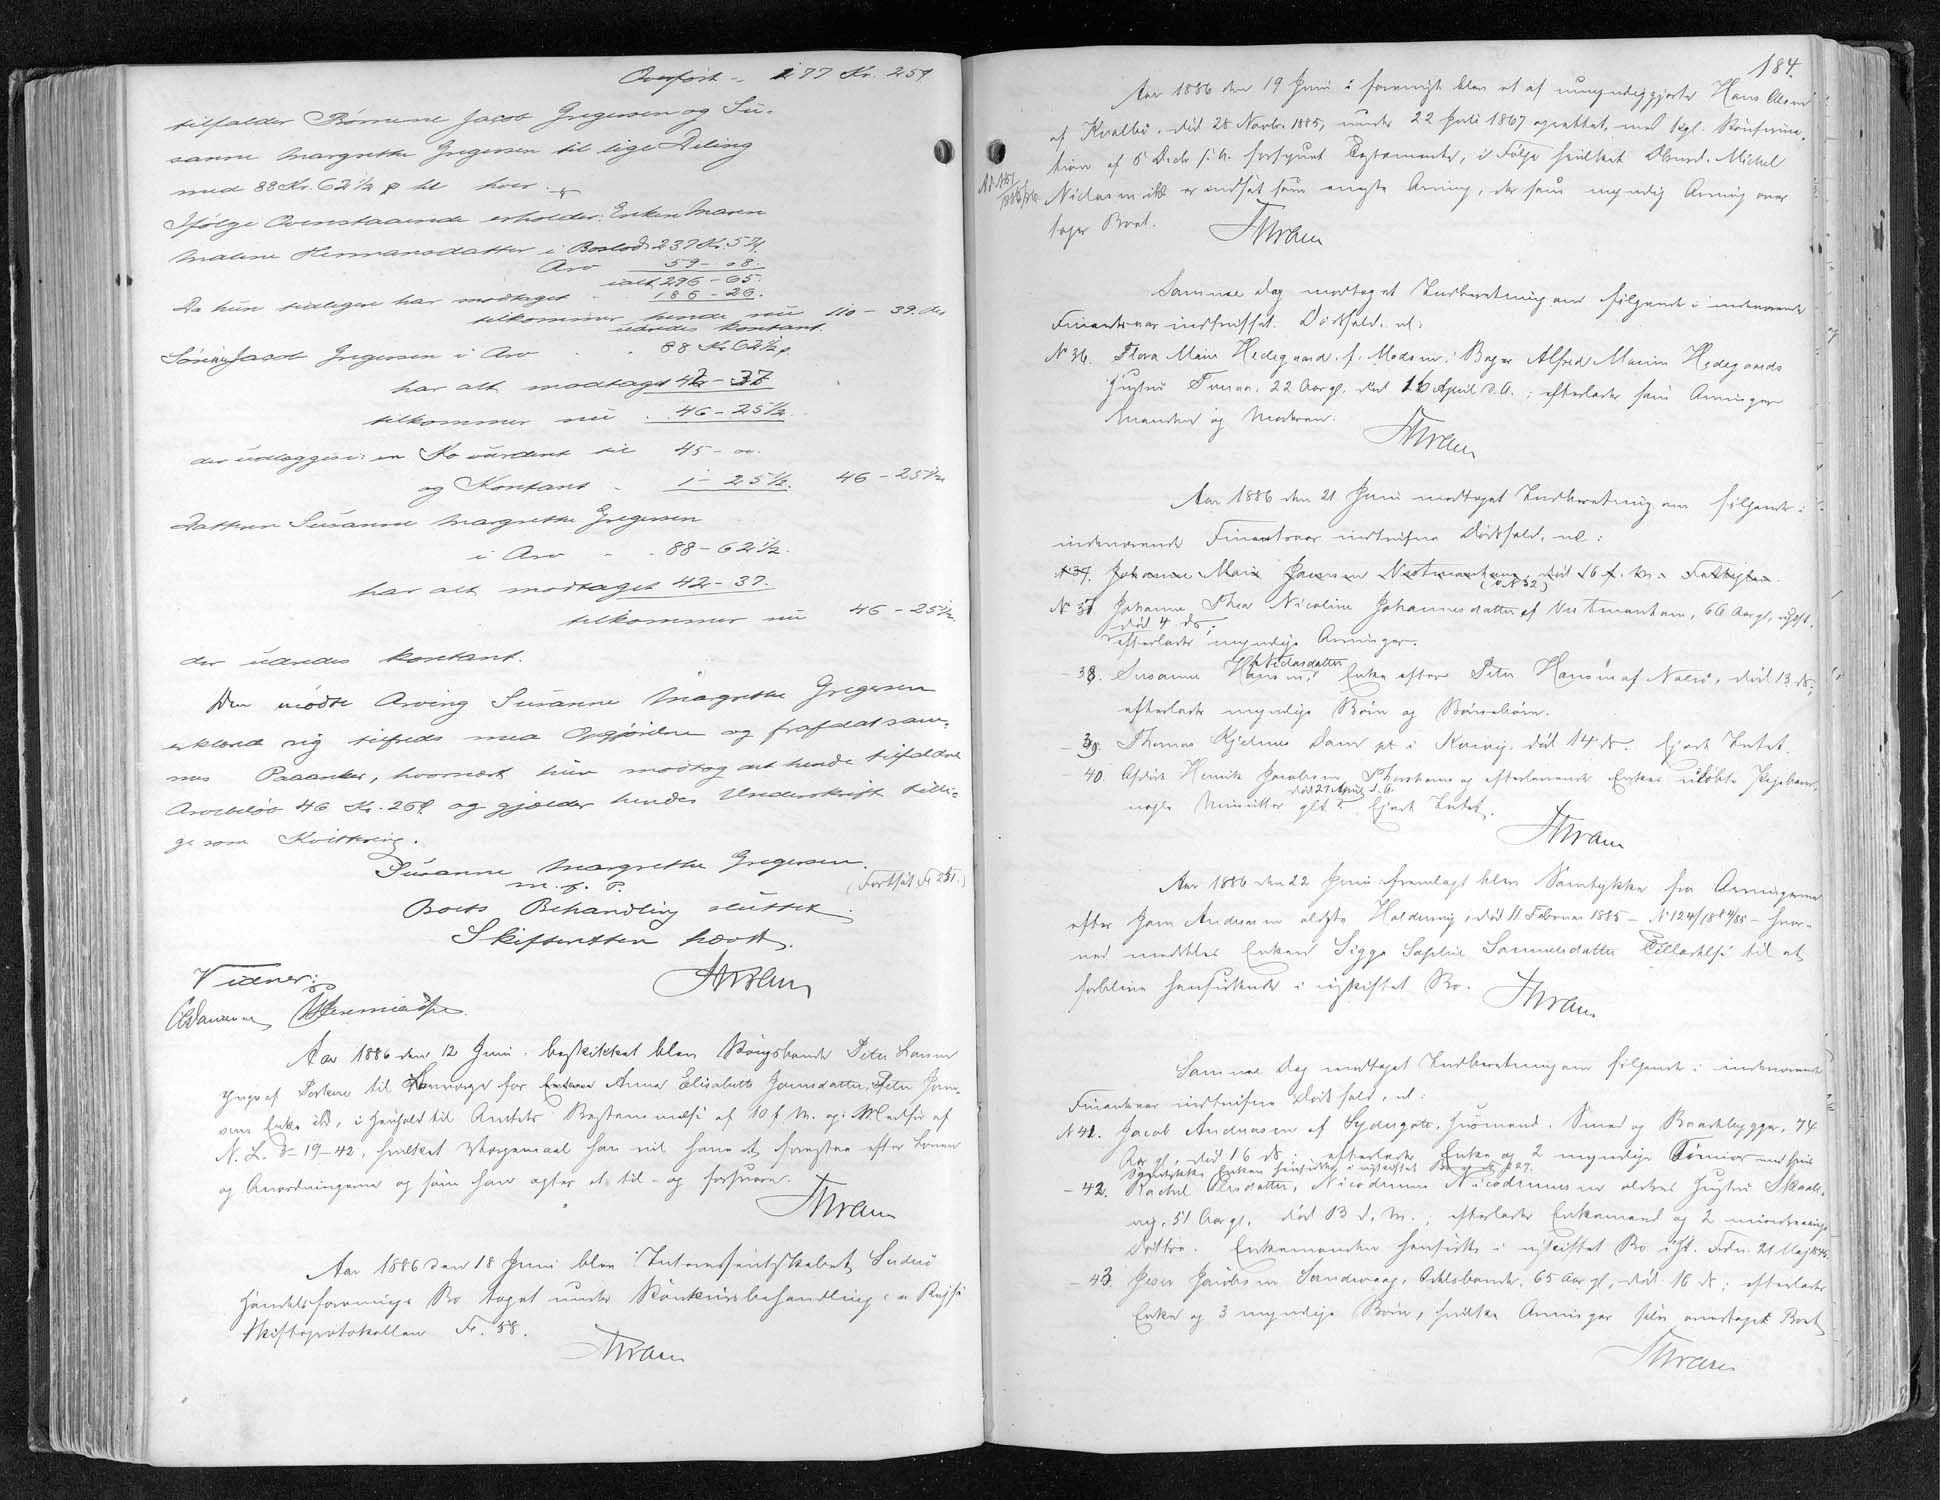 Overført - 177 Kr. 25 Ø
tilfalder Børnene Jacob Gregersen og Su-
sanne Margrethe Gregersen til lige Deling
med 88 Kr. 62½ Ø til hver.
Ifølge Ovenstaaende erholder: Enken Maren
Malene Hermansdatter i Boslod 237 Kr. 57
Arv 59 - 08.
ialt 296 - 65.
Da hun tidligere har modtaget - 186 - 26.
tilkommer hende nu 110 - 39. der
udredes kontant.
Sønnen Jacob Gregersen i Arv 88 Kr 62½ Ø
har alt modtaget 42 - 37
tilkommer nu 46 - 25½
der udlægges i: en Ko vurderet til 45 - 00.
og Kontant - 1 - 25½. 46 - 25½
Datteren Susanne Margrethe Gregersen
i Arv - - 88 - 62½.
har alt modtaget 42 - 37.
tilkommer nu 46 - 25½.
der udredes kontant.
Den mødte Arving Susanne Margrethe Gregersen
erklæred sig tilfreds med Opgjørelsen og frafaldt sam-
me Paaanker, hvornæst hun modtog det hende tilfaldne
Arvebeløb 46 Kr. 26 Ø og gjælder hendes Underskrift tilli-
ge som Kvittering.
Susanne Margrethe Gregersen.
m. f. P. (Fortsat Fo 251.)
Boets Behandling sluttet.
Skifteretten hævet.
Vidner:
Aar 1886 den 12 Juni. beskikket blev Kongsbonde Peter
af Porkere til Lavværge for Anna Elisabeth Joensdatter, Peter Joen-
sens Enke ibd, i Henhold til Amtets Bestemmelse af 10 f. M. og i Medfør af
N. L. 3-19-42, hvilket Værgemaal han vil have at forestaa efter Loven
og Anordningerne og som han agter at til- og forsvare.
Aar 1886 den 18 Juni blev Interessentskabet Suderø
Handelsforenings Bo taget under Konkursbehandling c a Rejse
Skifteprotokollen Fo. 58.
184.
Aar 1886 den 19 Juni i foreviist blev et af umyndiggjorte Hans Olsen
af Kvalbø, død 28 Novbr. 1885, under 22 Juli 1867 oprettet, med kgl. Konfirma-
tion af 5 Decbr. s. A. forsynet Testamente, i Følge hvilket Michel
Niclasen ibd er indsat som eneste Arving, der som myndig Arving over
tager Boet.
Samme Dag modtaget Indberetning om følgende i indeværende
Finantsaar indtrufset Dødsfald. nl:
No 36. Flora Marie Hedegaard, f. Madsen, Bager Alfred Marius Hedegaards
Hustru Tveraa, 22 Aar gl. død 16 April d. A.; efterlader som Arvinger
Manden og Moderen.
Aar 1886 den 21 Juni modtaget Indberetning om følgende i
indeværende Finantsaar indtrufne Dødsfald, nl:
No 37. Johanne Marie Joensen Vestmanhavn, død 16 f. M.
No 37. Johanne Thea Nicoline Johannesdatter af Vestmanhavn, 66 Aar gl, ugift,
død 4 ds.
efterlader myndige Arvinger.
Niclasdatter
- 38. Susanne Hansen, Enke efter Peter Hansen af Nolsø, død 13 ds.
efterlader myndige Børn og Børnebørn.
- 39. Thomas Dam pt i Kvivig, død 14 ds. Ejede Intet.
- 40. Afdøde Henrik Jacobsen Thorshavn og efterlevende Enkes udøbte Pigebarn,
død 27 April d. A.
nogle Minutter glt. Ejede Intet.
Aar 1886 den 22 Juni: fremlagt blev Samtykke fra Arvingerne
efter Joen Andreasen ældste Haldersvig, død 11 Februar 1885 - No 124/1884/85 - hvor-
ved meddeles Enken Sigga Sophie Samuelsdatter Tilladelse til at
forblive hensiddende i uskiftet Bo.
Samme Dag modtaget Indberetning om følgende i indeværende
Finantsaar indtrufne Dødsfald, nl:
No 41. Jacob Andreasen af Sydregøte, Huusmand, Smed og Baadebygger, 74
Aar gl, død 16 ds.; efterlader Enke og 2 myndige Sønner med hvis
Samtykke Enken hensidder i uskiftet Bo
- 42. Rachel Olesdatter, Nicodemus Nicodemussens ældres Hustru Skaale-
vig, 51 Aar gl, død 13 d. M.; efterlader Enkemand og 2 mindreaarige
Døttre. Enkemanden hensidder i uskiftet Bo ifl. Frdn. 21 Maj 1845.
- 43. Joen Jacobsen Sandevaag, Odelsbonde, 65 Aar gl, død 16 ds; efterlader
Enke og 3 myndige Børn, hvilke Arvinger selv overtaget Boet